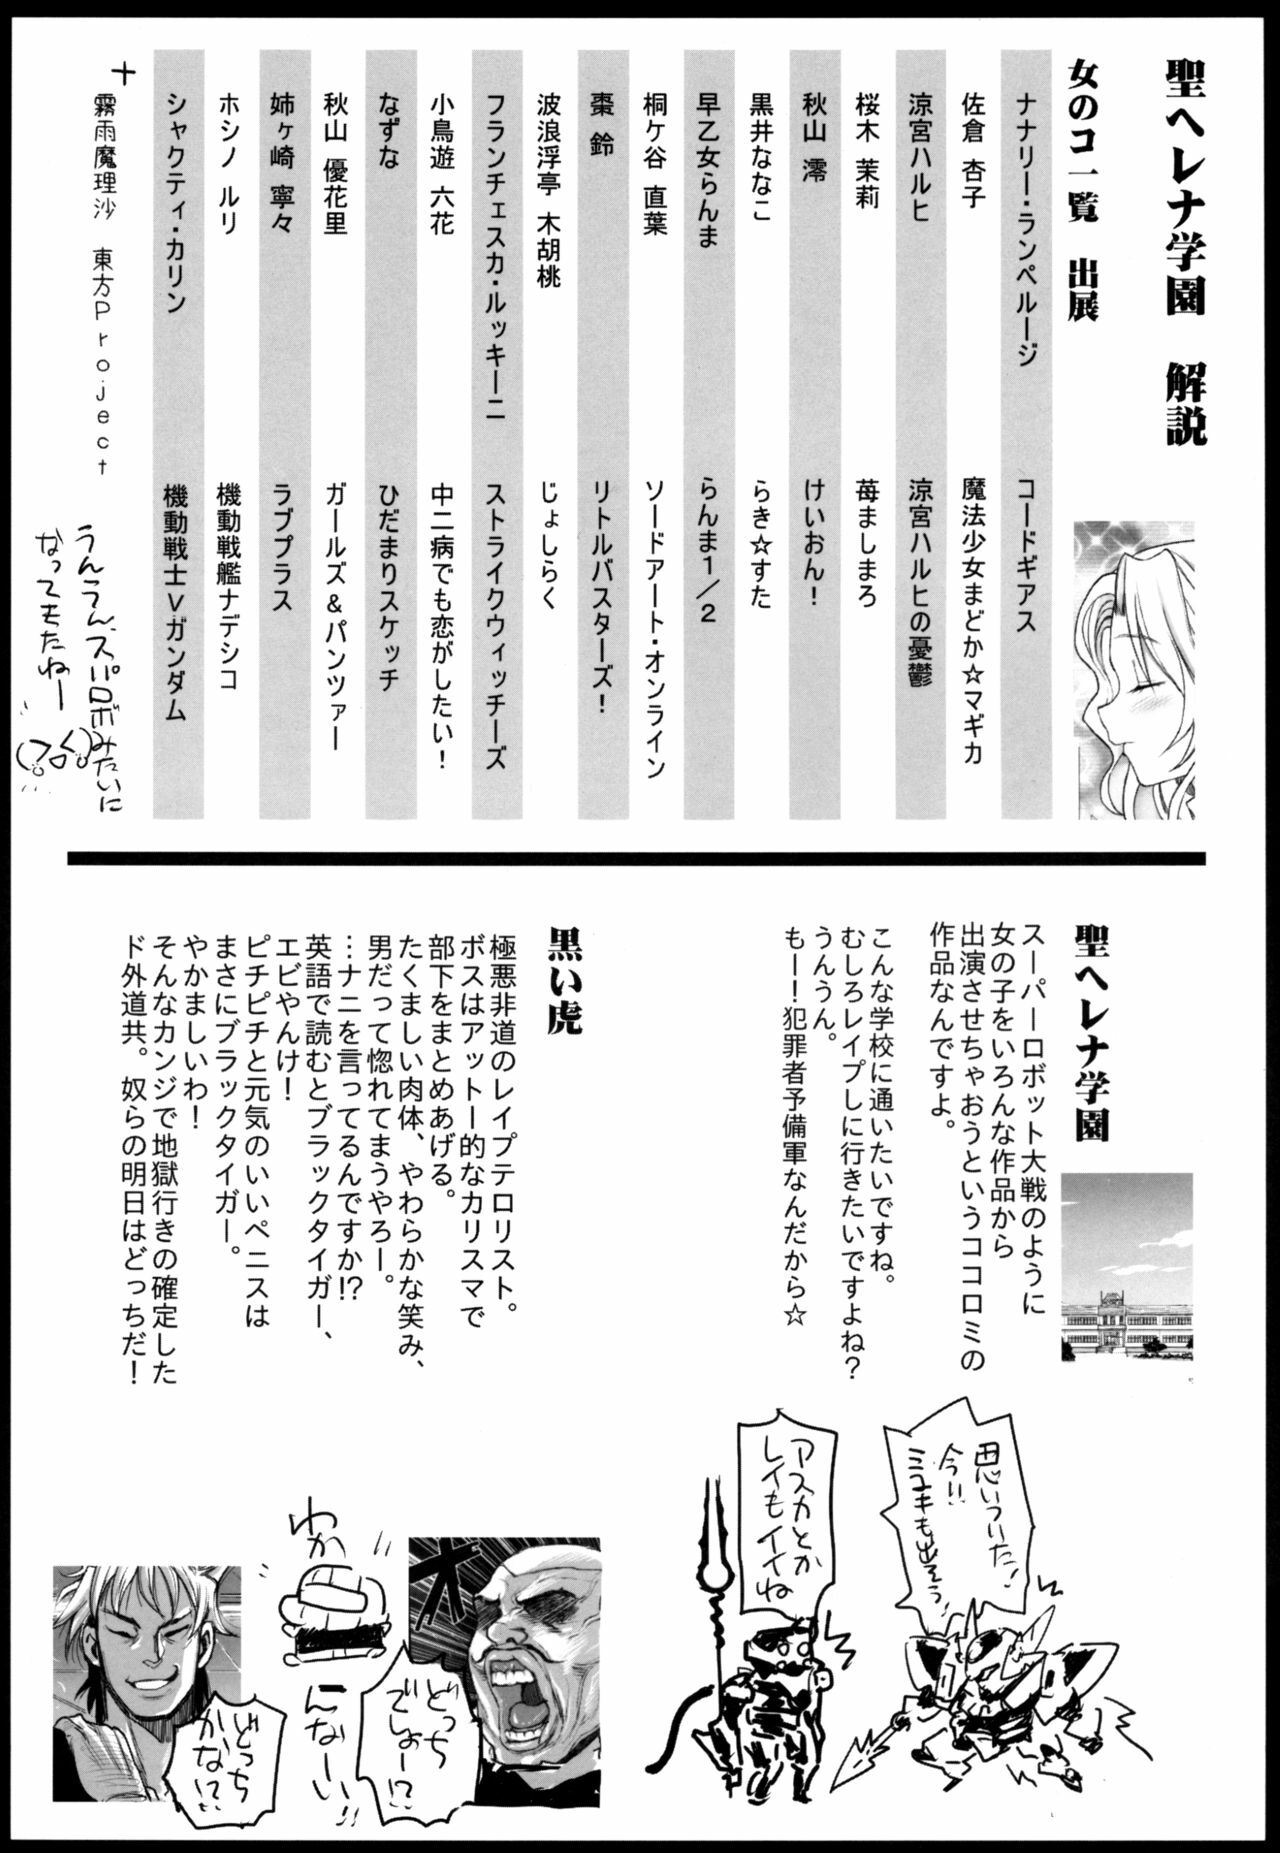 聖ヘレナ学園 解説
女のコ一覧 出展
ナナリー・ランペルージ コードギアス
佐倉 杏子 魔法少女まどか☆マギカ
涼宮ハルヒ 涼宮ハルヒの憂鬱
桜木 茉莉 苺ましまろ
秋山 澪 けいおん!
黒井ななこ らき☆すた
早乙女らんま らんま1/2
桐ケ谷 直葉 ソードアート・オンライン
棗 鈴 リトルバスターズ!
波浪浮亭 木胡桃 じょしらく
フランチェスカ・ルッキーニ ストライクウィッチーズ
小鳥遊 六花 中二病でも恋がしたい!
なずな ひだまりスケッチ
秋山 優花里 ガールズ&パンツァー
姉ヶ崎 寧々 ラブプラス
ホシノ ルリ 機動戦艦ナデシコ
シャクティ・カリン 機動戦士Vガンダム
+
霧雨魔理沙 東方Project
うんうん、スパロボみたいに
なってきたねー
聖ヘレナ学園
スーパーロボット大戦のように
女の子をいろんな作品から
出演させちゃおうというココロミの
作品なんですよ。
こんな学校に通いたいですね。
むしろレイプしに行きたいですよね?
うんうん。
もー!犯罪者予備軍なんだから☆
思いついた!
今!!
ミユキも出そう!
アスカとか
レイもイイね
黒い虎
極悪非道のレイプテロリスト。
ボスはアットー的なカリスマで
部下をまとめあげる。
たくましい肉体、やわらかな笑み、
男だって惚れてまうやろー。
…ナニを言ってるんですか!?
英語で読むとブラックタイガー、
エビやんけ!
ピチピチと元気のいいペニスは
まさにブラックタイガー。
やかましいわ!
そんなカンジで地獄行きの確定した
ド外道共。奴らの明日はどっちだ!
オ
どっち
でしょー!?
わか
んなーい!!
どっち
かな!?